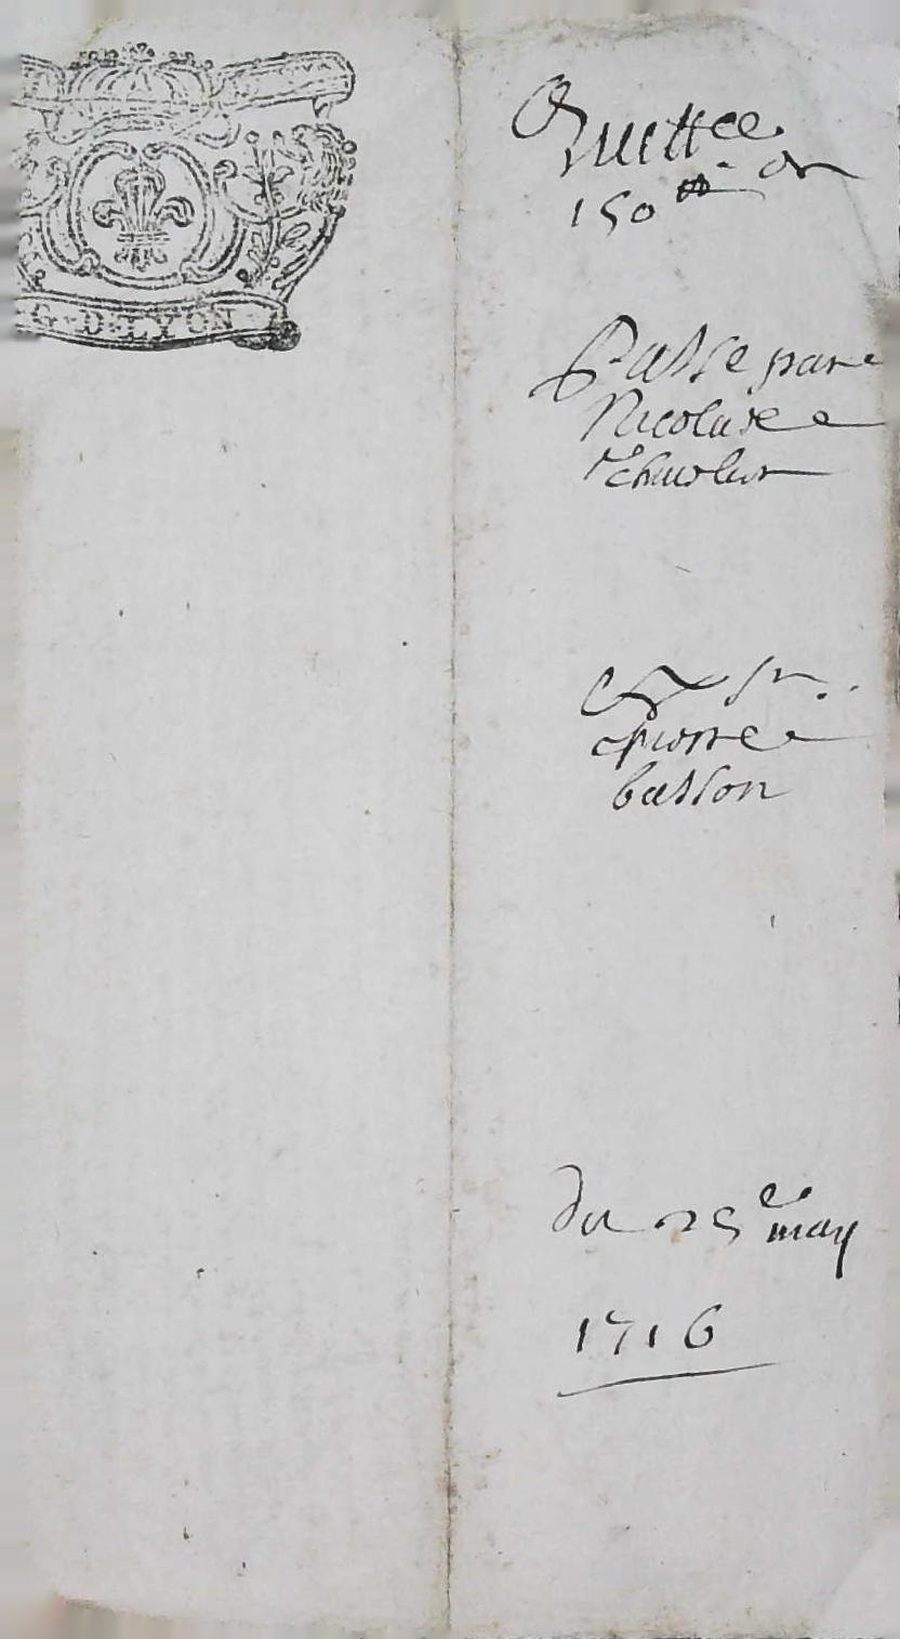 G·D·LYON
Quittce de
150 ₶
Passe par
Nicolas
Et Sr
pierre
basson
du 25e may
1716